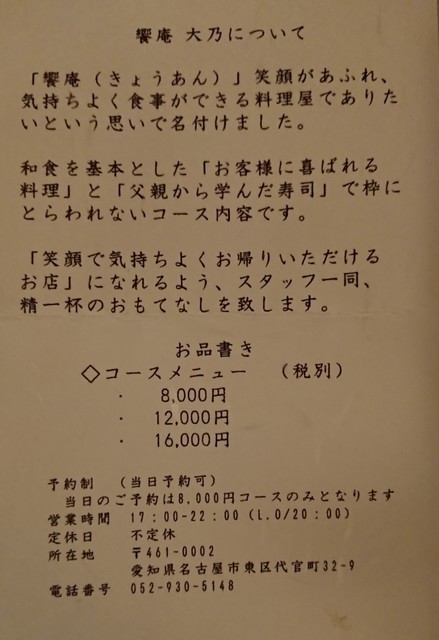 饗庵 大乃について
「饗庵（きょうあん）」笑顔があふれ、
気持ちよく食事ができる料理屋でありた
いという思いで名付けました。
和食を基本とした「お客様に喜ばれる
料理」と「父親から学んだ寿司」で枠に
とらわれないコース内容です。
「笑顔で気持ちよくお帰りいただける
お店」になれるよう、スタッフ一同、
精一杯のおもてなしを致します。
お品書き
◇コースメニュー （税別）
・ 8,000円
・ 12,000円
・ 16,000円
予約制 （当日予約可）
当日のご予約は8,000円コースのみとなります
営業時間 17：00-22：00（L.O/20：00）
定休日 不定休
所在地 〒461-0002
愛知県名古屋市東区代官町32-9
電話番号 052-930-5148